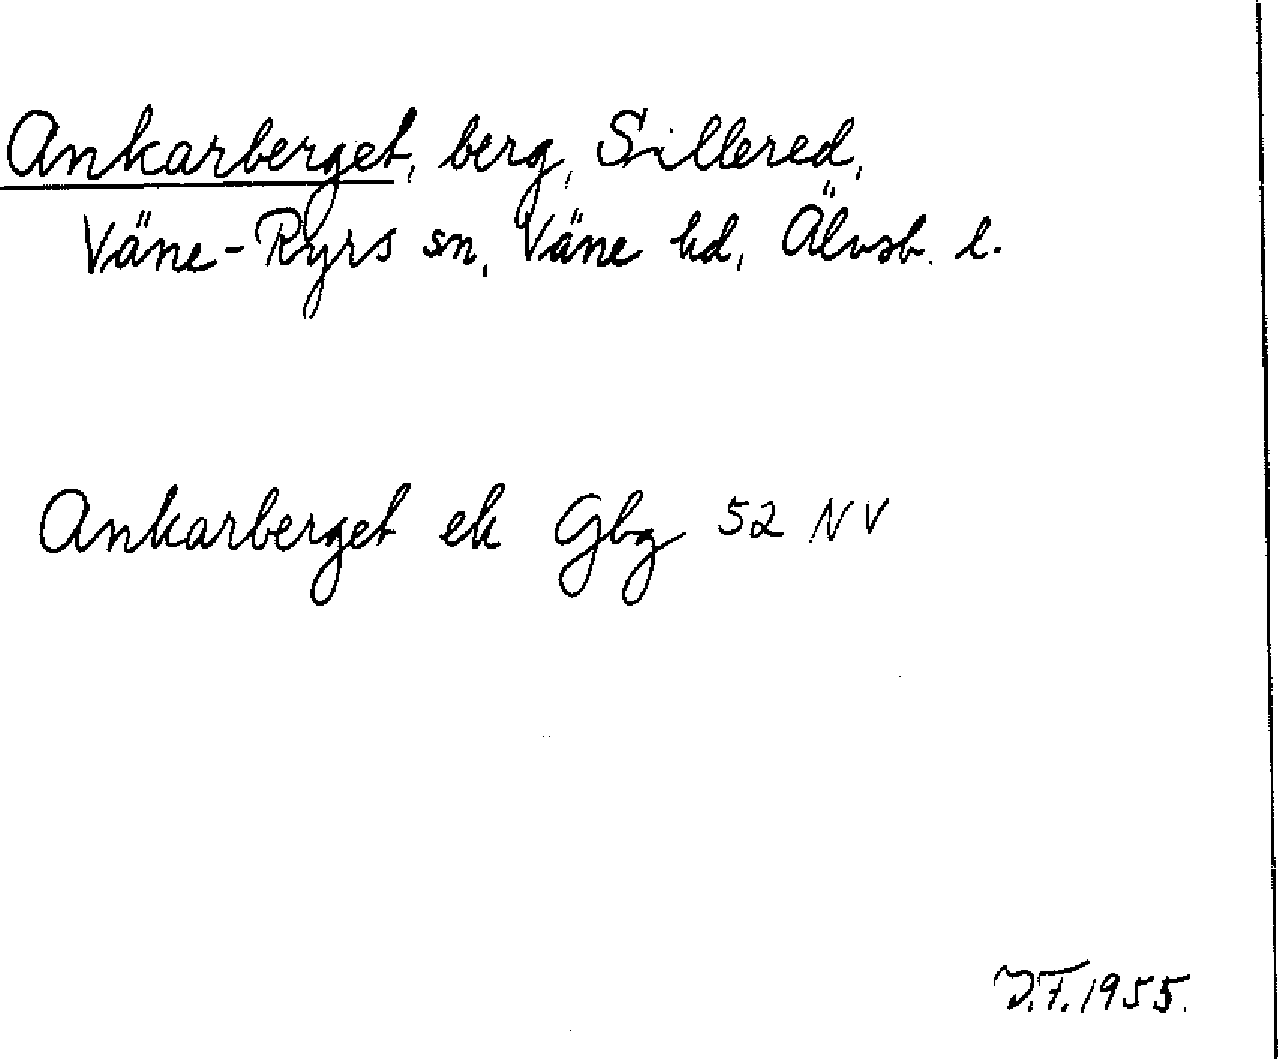 Ankarberget, berg, Sillered,
Väne-Ryrs sn, Väne hd, Älvsb. l.
Ankarberget ek Gbg 52 NV
J.F. 1955.